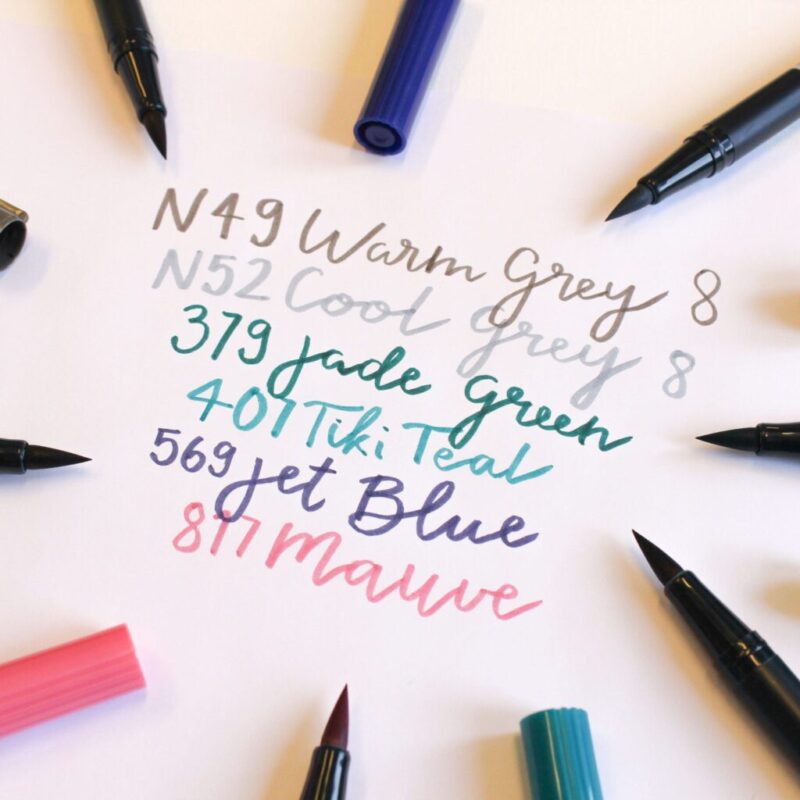 N49 Warm Grey 8
N52 Cool Grey 8
379 Jade Green
401 Tiki Teal
569 Jet Blue
817 Mauve